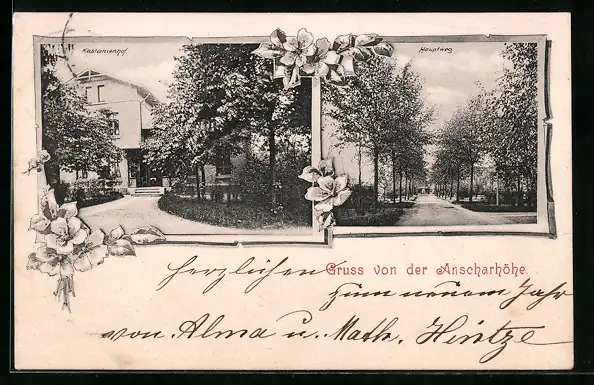 Kastanienhof
Hauptweg
Gruss von der Anscharhöhe.
herzlichen
zum neuem Jahr
von Alma u. Math. Hintze